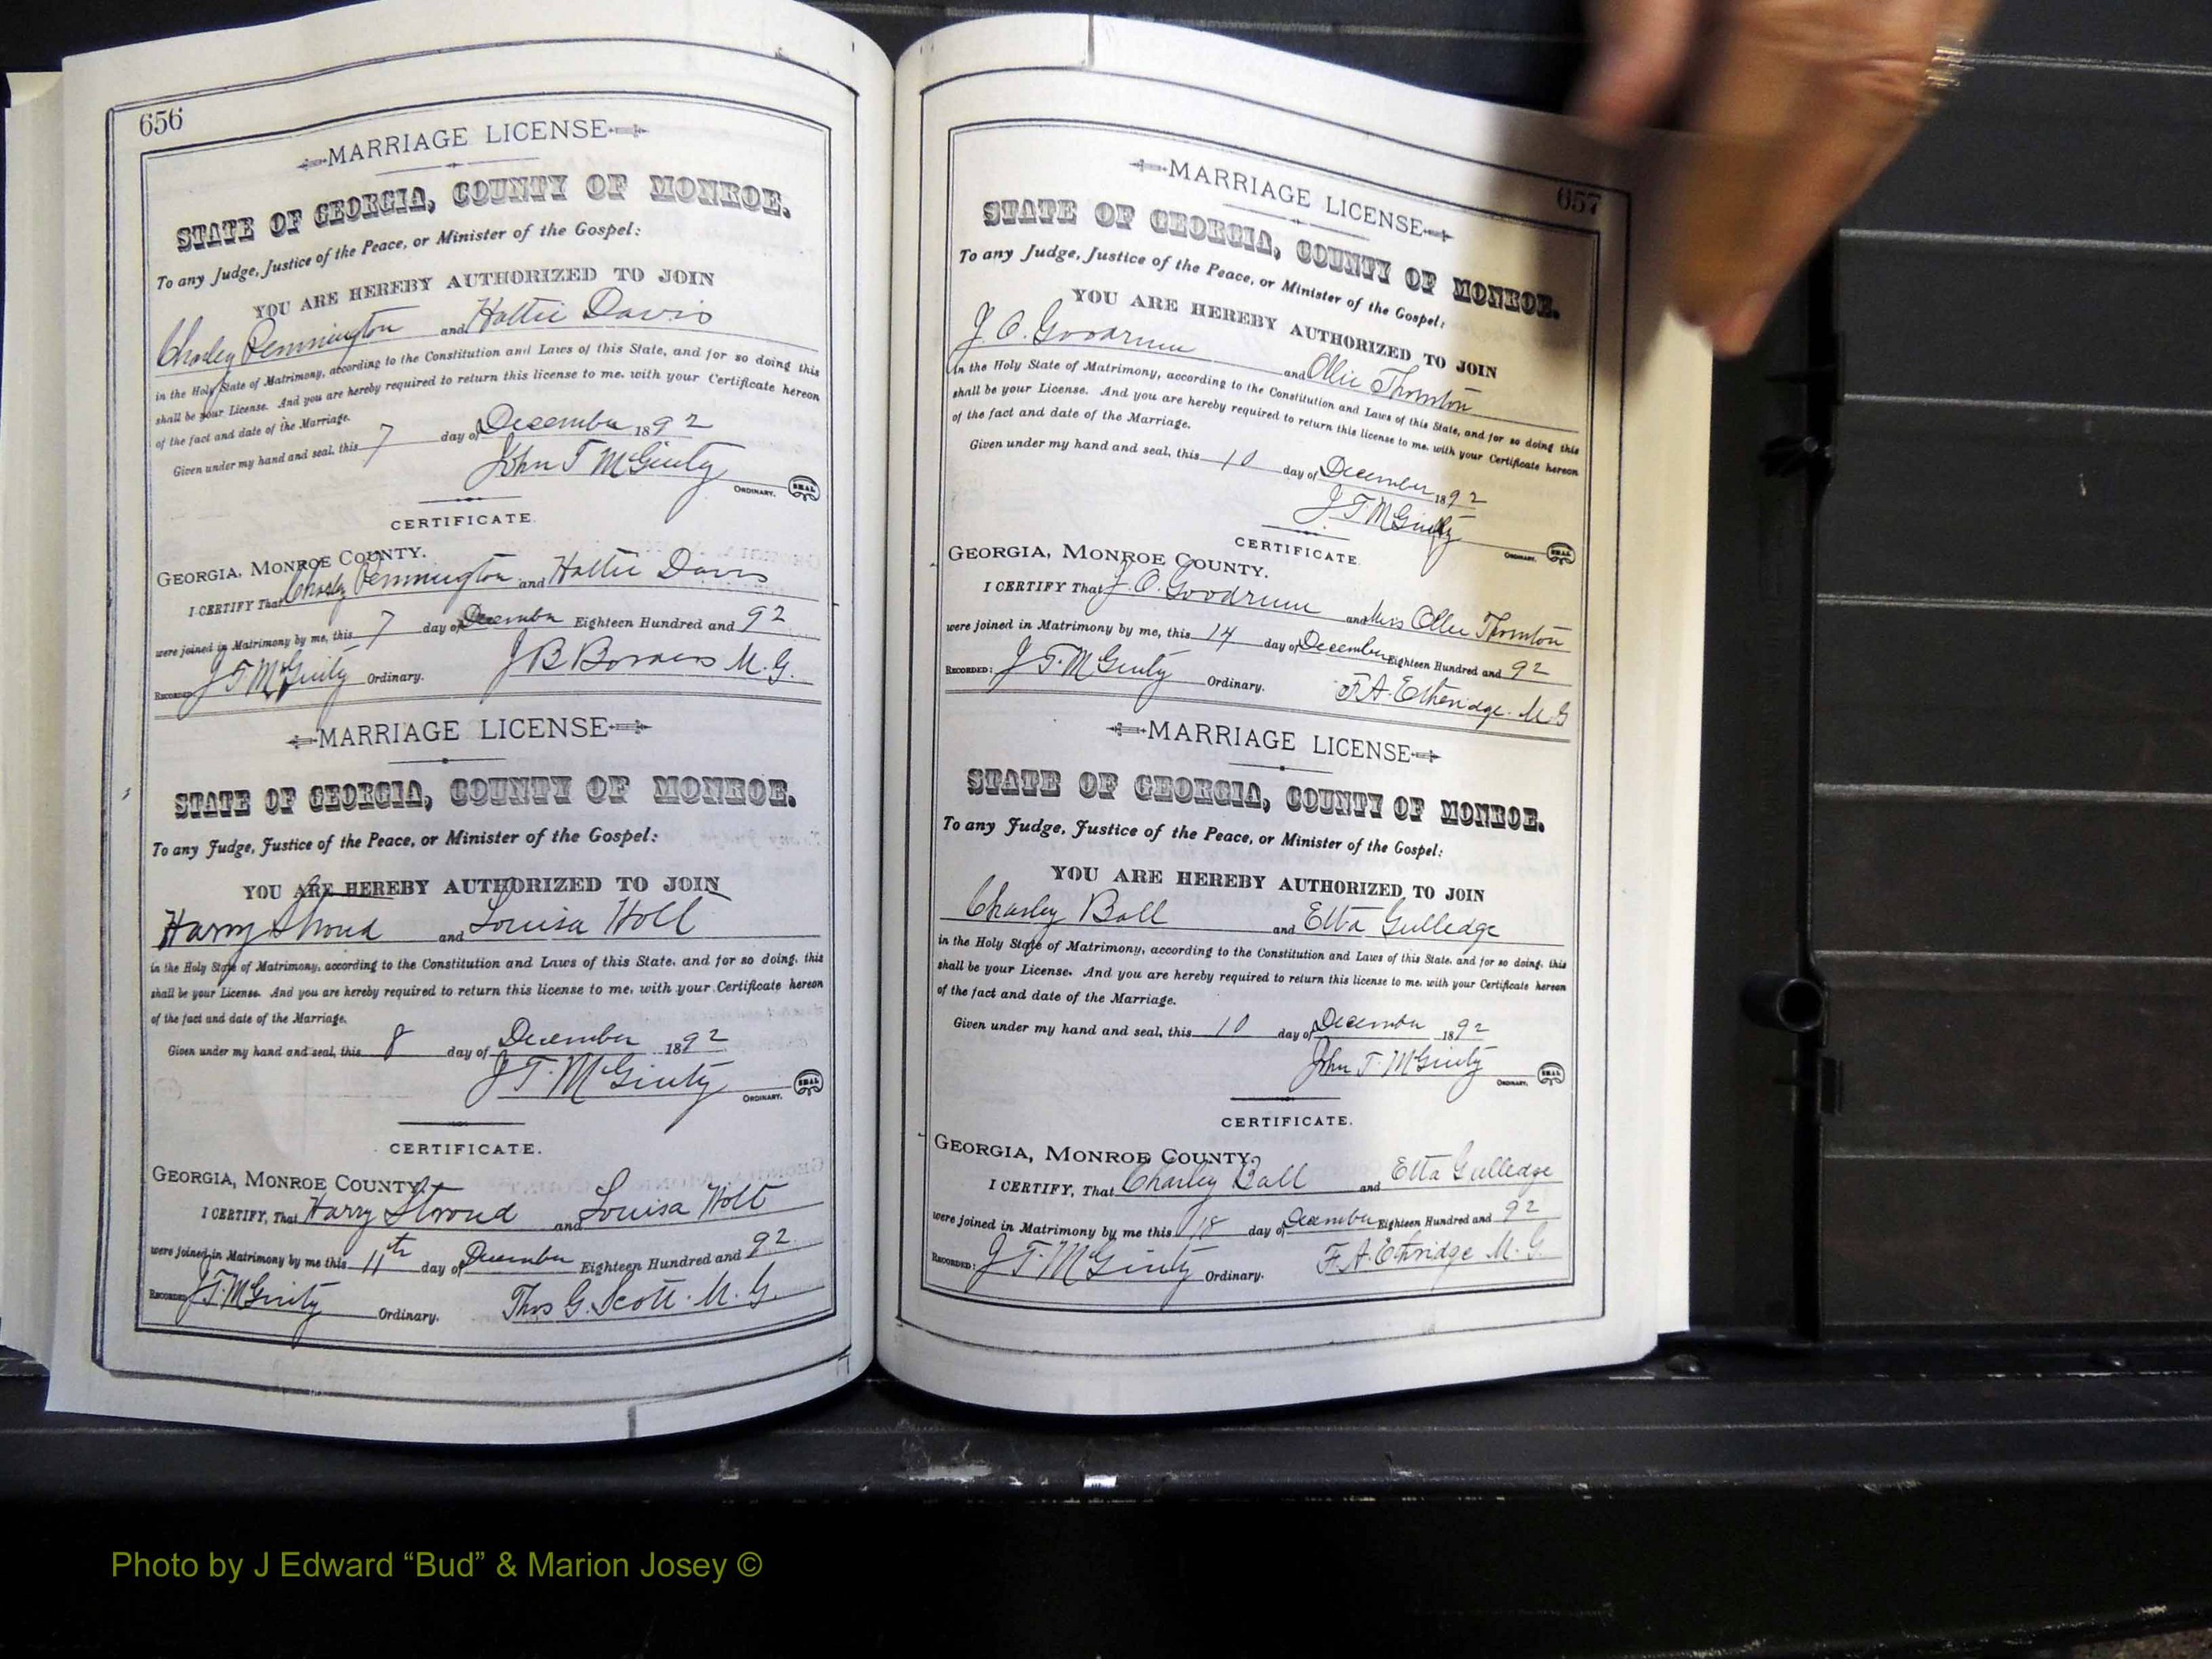 656
MARRIAGE LICENSE
STATE OF GEORGIA, COUNTY OF MONROE.
To any Judge, Justice of the Peace, or Minister of the Gospel:
YOU ARE HEREBY AUTHORIZED TO JOIN
Charley Pennington and Hattie Davis
in the Holy State of Matrimony, according to the Constitution and Laws of this State, and for so doing this
shall be your License. And you are hereby required to return this license to me, with your Certificate hereon
of the fact and date of the Marriage.
Given under my hand and seal, this 7 day of December 1892
John T McGinty
ORDINARY. SEAL
CERTIFICATE.
GEORGIA, MONROE COUNTY.
I CERTIFY That Charley Pennington and Hattie Davis
were joined in Matrimony by me, this 7 day of December Eighteen Hundred and 92
RECORDED: J T McGinty Ordinary. J B M. G.
MARRIAGE LICENSE
STATE OF GEORGIA, COUNTY OF MONROE.
To any Judge, Justice of the Peace, or Minister of the Gospel:
YOU ARE HEREBY AUTHORIZED TO JOIN
Harry Stroud and Louisa Holt
in the Holy State of Matrimony, according to the Constitution and Laws of this State, and for so doing, this
shall be your License. And you are hereby required to return this license to me, with your Certificate hereon
of the fact and date of the Marriage.
Given under my hand and seal, this 8 day of December 1892
J. T. McGinty
ORDINARY. SEAL
CERTIFICATE.
GEORGIA, MONROE COUNTY.
I CERTIFY, That Harry Stroud and Louisa Holt
were joined in Matrimony by me this 11th day of December Eighteen Hundred and 92
RECORDED: J. T. McGinty Ordinary. Thos G. Scott. M. G.
657
MARRIAGE LICENSE
STATE OF GEORGIA, COUNTY OF MONROE.
To any Judge, Justice of the Peace, or Minister of the Gospel:
YOU ARE HEREBY AUTHORIZED TO JOIN
J. O. Goodrum and Ollie Thornton
in the Holy State of Matrimony, according to the Constitution and Laws of this State, and for so doing this
shall be your License. And you are hereby required to return this license to me, with your Certificate hereon
of the fact and date of the Marriage.
Given under my hand and seal, this 10 day of December 1892
J T McGinty
ORDINARY. SEAL
CERTIFICATE.
GEORGIA, MONROE COUNTY.
I CERTIFY That J. O. Goodrum and Miss Ollie Thornton
were joined in Matrimony by me, this 14 day of December Eighteen Hundred and 92
RECORDED: J T McGinty Ordinary. F. A. Etheridge. M G
MARRIAGE LICENSE
STATE OF GEORGIA, COUNTY OF MONROE.
To any Judge, Justice of the Peace, or Minister of the Gospel:
YOU ARE HEREBY AUTHORIZED TO JOIN
Charley Ball and Etta Gulledge
in the Holy State of Matrimony, according to the Constitution and Laws of this State, and for so doing, this
shall be your License. And you are hereby required to return this license to me, with your Certificate hereon
of the fact and date of the Marriage.
Given under my hand and seal, this 10 day of December 1892
John T. McGinty
ORDINARY. SEAL
CERTIFICATE.
GEORGIA, MONROE COUNTY.
I CERTIFY, That Charley Ball and Etta Gulledge
were joined in Matrimony by me this 18 day of December Eighteen Hundred and 92
RECORDED: J T. McGinty Ordinary. F. A. Ethridge M. G.
Photo by J Edward “Bud” & Marion Josey ©